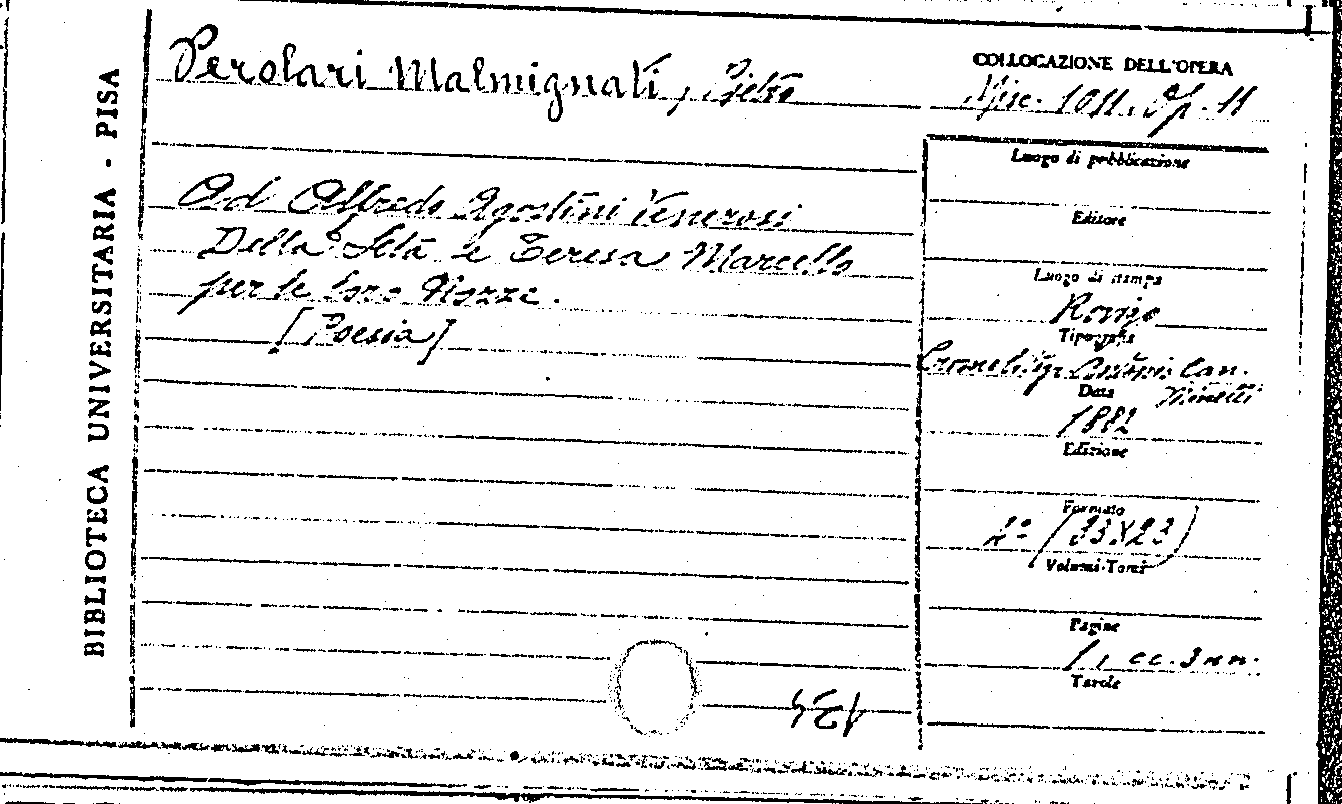 BIBLIOTECA UNIVERSITARIA - PISA
Perolari Malmignati, Pietro
COLLOCAZIONE DELL'OPERA
Misc. 1011. Op. 11
Ad Alfredo Agostini Venerosi
Della Seta e Teresa Marcello
per le loro Nozze.
[Poesia]
Luogo di pubblicazione
Editore
Luogo di stampa
Rovigo
Tipografia
Antonio Can.
Data
1882
Edizione
Formato
(33X23)
Volumi-Tomi
Pagine
1, cc. 3 nn.
Tavole